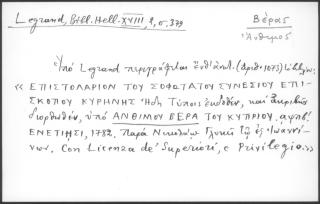 Legrand, Bibl. Hell. XVIII, 2, σ. 379
Βέρας
Ἄνθιμος
Ὑπὸ Legrand περιγράφεται (ἀριθ. 1073)
« ΕΠΙΣΤΟΛΑΡΙΟΝ ΤΟΥ ΣΟΦΩΤΑΤΟΥ ΣΥΝΕΣΙΟΥ ΕΠΙ-
ΣΚΟΠΟΥ ΚΥΡΗΝΗΣ Ἤδη Τύποις ἐκδοθέν, καὶ ἀκριβῶς
διορθωθέν, ὑπὸ ΑΝΘΙΜΟΥ ΒΕΡΑ ΤΟΥ ΚΥΠΡΙΟΥ. αψπβ
ΕΝΕΤΙΗΣΙ, 1782. Παρὰ Νικολάῳ Γλυκεῖ τῷ ἐξ Ἰωαννί-
νων. Con Licenza de' Superiori, e Privilegio.»